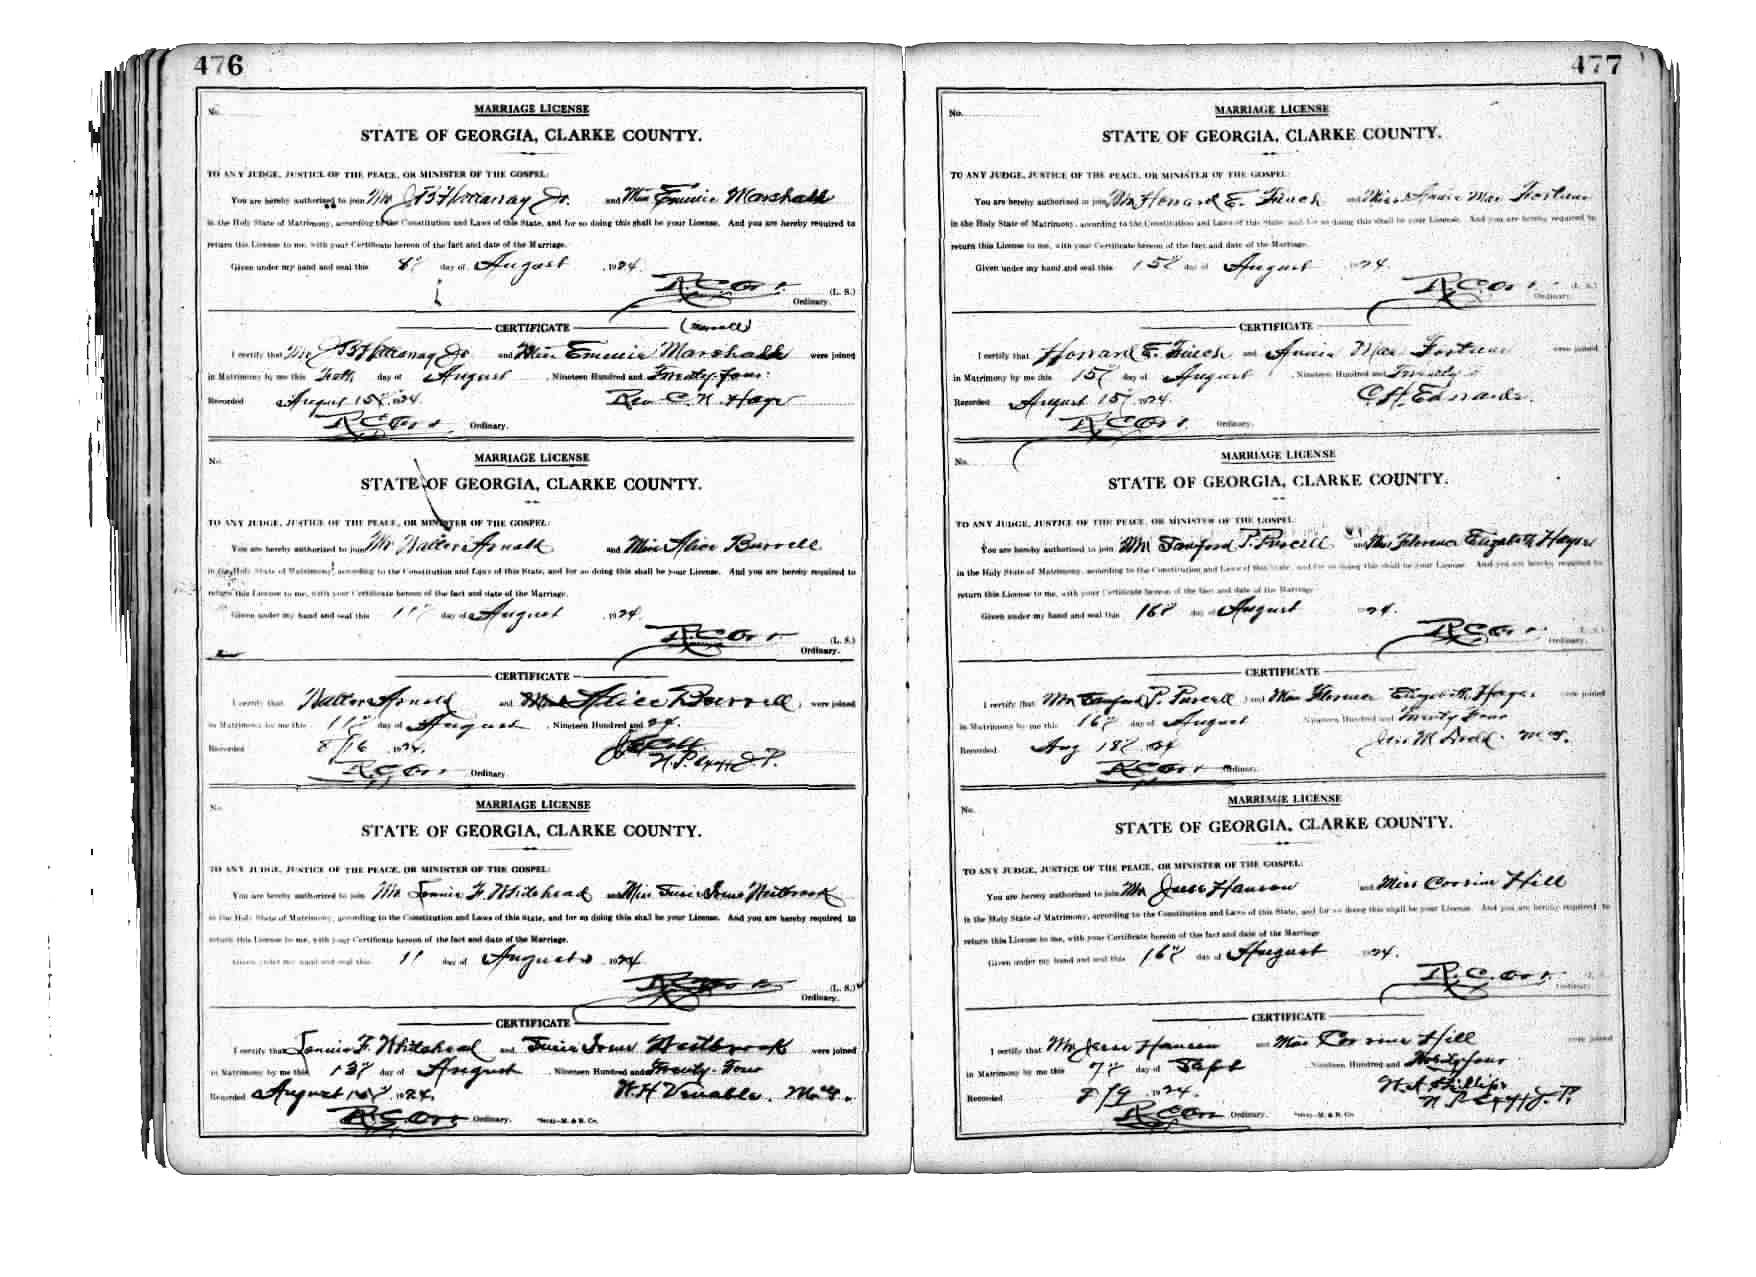 476
No.
MARRIAGE LICENSE
STATE OF GEORGIA, CLARKE COUNTY.
TO ANY JUDGE, JUSTICE OF THE PEACE, OR MINISTER OF THE GOSPEL:
You are hereby authorized to join Mr J B Jr. and Miss Marshall
in the Holy State of Matrimony, according to the Constitution and Laws of this State, and for so doing this shall be your License. And you are hereby required to
return this License to me, with your Certificate hereon of the fact and date of the Marriage.
Given under my hand and seal this 8" day of August, 1924.
R.C. Orr (L. S.)
Ordinary.
CERTIFICATE
I certify that Mr J B Jr and Miss Marshall were joined
in Matrimony by me this day of August, Nineteen Hundred and Twenty four.
Recorded August 15" 1924. Rev. C. N.
R C Orr Ordinary.
No.
MARRIAGE LICENSE
STATE OF GEORGIA, CLARKE COUNTY.
TO ANY JUDGE, JUSTICE OF THE PEACE, OR MINISTER OF THE GOSPEL:
You are hereby authorized to join Mr Walter Arnold and Miss Alice Burrell
in the Holy State of Matrimony, according to the Constitution and Laws of this State, and for so doing this shall be your License. And you are hereby required to
return this License to me, with your Certificate hereon of the fact and date of the Marriage.
Given under my hand and seal this 11" day of August, 1924.
R C Orr (L. S.)
Ordinary.
CERTIFICATE
I certify that Walter Arnold and Alice Burrell were joined
in Matrimony by me this 11" day of August, Nineteen Hundred and 24.
Recorded 8/16 1924.
N. P. & Ex off J. P.
R.C. Orr Ordinary
No.
MARRIAGE LICENSE
STATE OF GEORGIA, CLARKE COUNTY.
TO ANY JUDGE, JUSTICE OF THE PEACE, OR MINISTER OF THE GOSPEL:
You are hereby authorized to join Mr Lonnie F. Whitehead and Miss Susie Irene Westbrook
in the Holy State of Matrimony, according to the Constitution and Laws of this State, and for so doing this shall be your License. And you are hereby required to
return this License to me, with your Certificate hereon of the fact and date of the Marriage.
Given under my hand and seal this 11 day of August, 1924.
R C Orr (L. S.)
Ordinary.
CERTIFICATE
I certify that Lonnie F. Whitehead and Susie Irene Westbrook were joined
in Matrimony by me this 13" day of August, Nineteen Hundred and Twenty-Four
Recorded August 1924. W. H Venable. M. G.
R.C. Orr Ordinary.
477
No.
MARRIAGE LICENSE
STATE OF GEORGIA, CLARKE COUNTY.
TO ANY JUDGE, JUSTICE OF THE PEACE, OR MINISTER OF THE GOSPEL:
You are hereby authorized to join Mr Howard E. Finch and Miss Annie Mae Fortune
in the Holy State of Matrimony, according to the Constitution and Laws of this State, and for so doing this shall be your License. And you are hereby required to
return this License to me, with your Certificate hereon of the fact and date of the Marriage.
Given under my hand and seal this 15" day of August 1924.
R.C. Orr (L. S.)
Ordinary.
CERTIFICATE
I certify that Howard E. Finch and Annie Mae Fortune were joined
in Matrimony by me this 15" day of August, Nineteen Hundred and Twenty
Recorded August 15" 1924. C H. Edwards.
R C Orr Ordinary.
No.
MARRIAGE LICENSE
STATE OF GEORGIA, CLARKE COUNTY.
TO ANY JUDGE, JUSTICE OF THE PEACE, OR MINISTER OF THE GOSPEL:
You are hereby authorized to join Mr Sanford P. Purcell and Miss Florence Elizabeth Hayes
in the Holy State of Matrimony, according to the Constitution and Laws of this State, and for so doing this shall be your License. And you are hereby required to
return this License to me, with your Certificate hereon of the fact and date of the Marriage
Given under my hand and seal this 16" day of August 1924.
R C Orr (L. S.)
Ordinary.
CERTIFICATE
I certify that Mr Sanford P. Purcell and Miss Florence Elizabeth Hayes were joined
in Matrimony by me this 16" day of August Nineteen Hundred and Twenty Four
Recorded Aug 18" 1924 Jno M M. G.
R C Orr Ordinary.
No.
MARRIAGE LICENSE
STATE OF GEORGIA, CLARKE COUNTY.
TO ANY JUDGE, JUSTICE OF THE PEACE, OR MINISTER OF THE GOSPEL:
You are hereby authorized to join Mr Jesse Hanson and Miss Corrine Hill
in the Holy State of Matrimony, according to the Constitution and Laws of this State, and for so doing this shall be your License. And you are hereby required to
return this License to me, with your Certificate hereon of the fact and date of the Marriage
Given under my hand and seal this 16" day of August 1924.
R. C. Orr
Ordinary.
CERTIFICATE
I certify that Mr Jesse Hanson and Miss Corrine Hill were joined
in Matrimony by me this 7" day of Sept Nineteen Hundred and Twenty four
Recorded 9/9 1924. W. A. Phillips
N. P. & Ex off J. P.
R C Orr Ordinary.